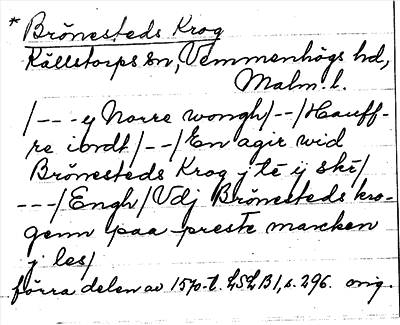 * Brönesteds Krog
Källstorps sn, Vemmenhögs hd,
Malm. l.
/---y Norre wongh/--/Hauff-
re iordt/--/En agir wid
Brönesteds Krog j té ij skr/
---/Engh/Vdj Brönesteds kro-
genn paa preste marcken
j les/
förra delen av 1570-t. LSLB1, s. 296. orig.